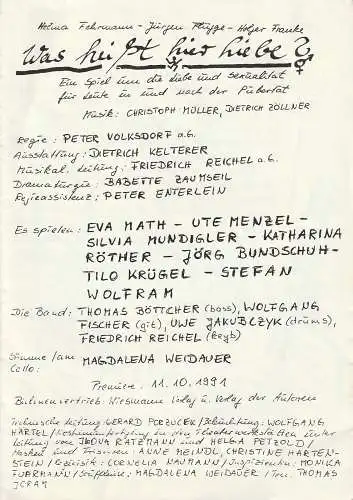 Helma Fehrmann - Jürgen Flügge - Holger Franke
Was heißt hier Liebe?
Ein Spiel um die Liebe und Sexualität
für Leute in und nach der Pubertät
Musik: CHRISTOPH MÜLLER, DIETRICH ZÖLLNER
Regie: PETER VOLKSDORF a.G.
Ausstattung: DIETRICH KELTERER
Musikal. Leitung: FRIEDRICH REICHEL a.G.
Dramaturgie: BABETTE ZAUMSEIL
Regieassistenz: PETER ENTERLEIN
Es spielen: EVA MATH - UTE MENZEL -
SILVIA MUNDIGLER - KATHARINA
RÖTHER - JÖRG BUNDSCHUH -
TILO KRÜGEL - STEFAN
WOLFRAM
Die Band: THOMAS BÖTTCHER (bass), WOLFGANG
FISCHER (git), UWE JAKUBCZYK (drums),
FRIEDRICH REICHEL (keyb)
Stimme/am
Cello: MAGDALENA WEIDAUER
Premiere: 11.10.1991
Bühnenvertrieb: Verlag der Autoren
Technische Leitung: GERARD PORZUCEK/Beleuchtung: WOLFGANG
HARTEL/Kostümanfertigung in den Theaterwerkstätten unter
Leitung von ILONA RATZMANN und HELGA PETZOLD/
Masken und Frisuren: ANNE MEINDL, CHRISTINE HARTEN-
STEIN/Requisite: CORNELIA NAUMANN/Inspizientin: MONIKA
FUHRMANN/Souffleuse: MAGDALENA WEIDAUER/Ton: THOMAS